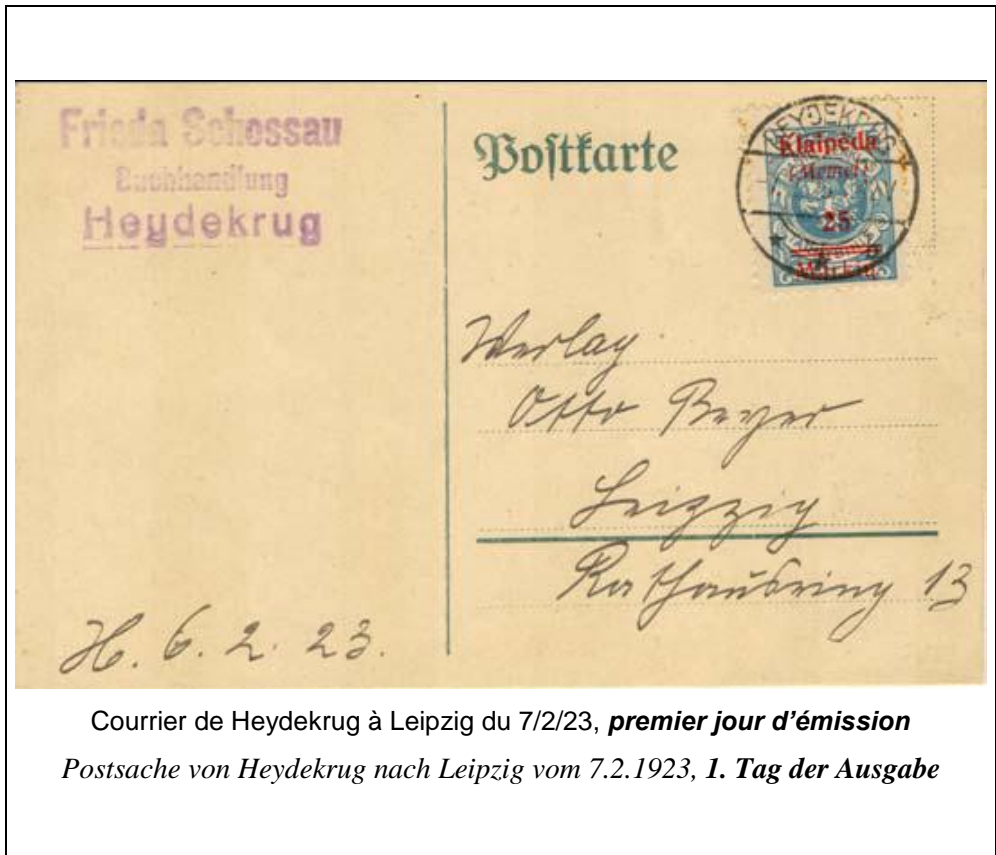 Frieda Schessau
Buchhandlung
Heydekrug
Postkarte
HEYDEKRUG
Klaipėda
(Memel)
25
Markių
Verlag
Otto Beyer
Leipzig
Rathausring 13
H. 6. 2. 23.
Courrier de Heydekrug à Leipzig du 7/2/23, premier jour d’émission
Postsache von Heydekrug nach Leipzig vom 7.2.1923, 1. Tag der Ausgabe